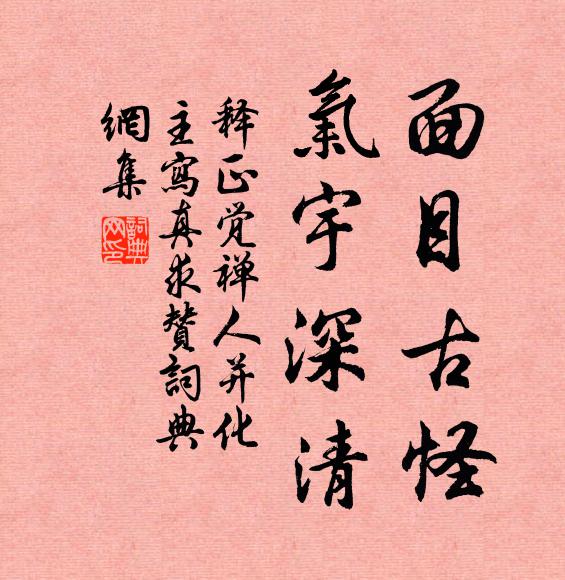 面目古怪
氣宇深清
释正觉禅人并化
主寫真求赞詞典
網集
詞典
网印